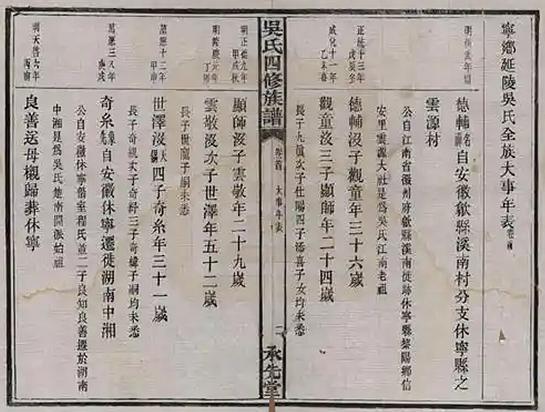 寧鄉延陵吳氏全族大事年表 卷首
明洪武年間
德輔 自安徽歙縣溪南村分支休寧縣之
雲源村
公自江南省徽州府歙縣溪南徙休寧縣 陽鄉信
安里雲源大社是為吳氏江南老祖
正統十三年
戊辰冬
德輔沒子觀童年三十六歲
成化十一年
乙未春
觀童沒三子顯師年二十四歲
長子九 次子仕陽四子添喜子女均未悉
吳氏四修族譜
卷首
大事年表
二
承先堂
明正德九年
甲戌秋
顯師沒子雲敬年二十九歲
明隆慶元年
丁卯
雲敬沒次子世澤年五十二歲
長子世 子嗣未悉
萬曆十二年
甲申
世澤沒 四子奇糸年三十一歲
長子奇 次子奇 三子奇 子嗣均未悉
萬曆三八年
庚戌
奇糸 自安徽休寧遷徙湖南中湘
公自安徽休寧偕室程氏並二子良知良善遷於湖南
中湘是為吳氏楚南開派始祖
明天啟六年
丙寅
良善送母櫬歸葬休寧